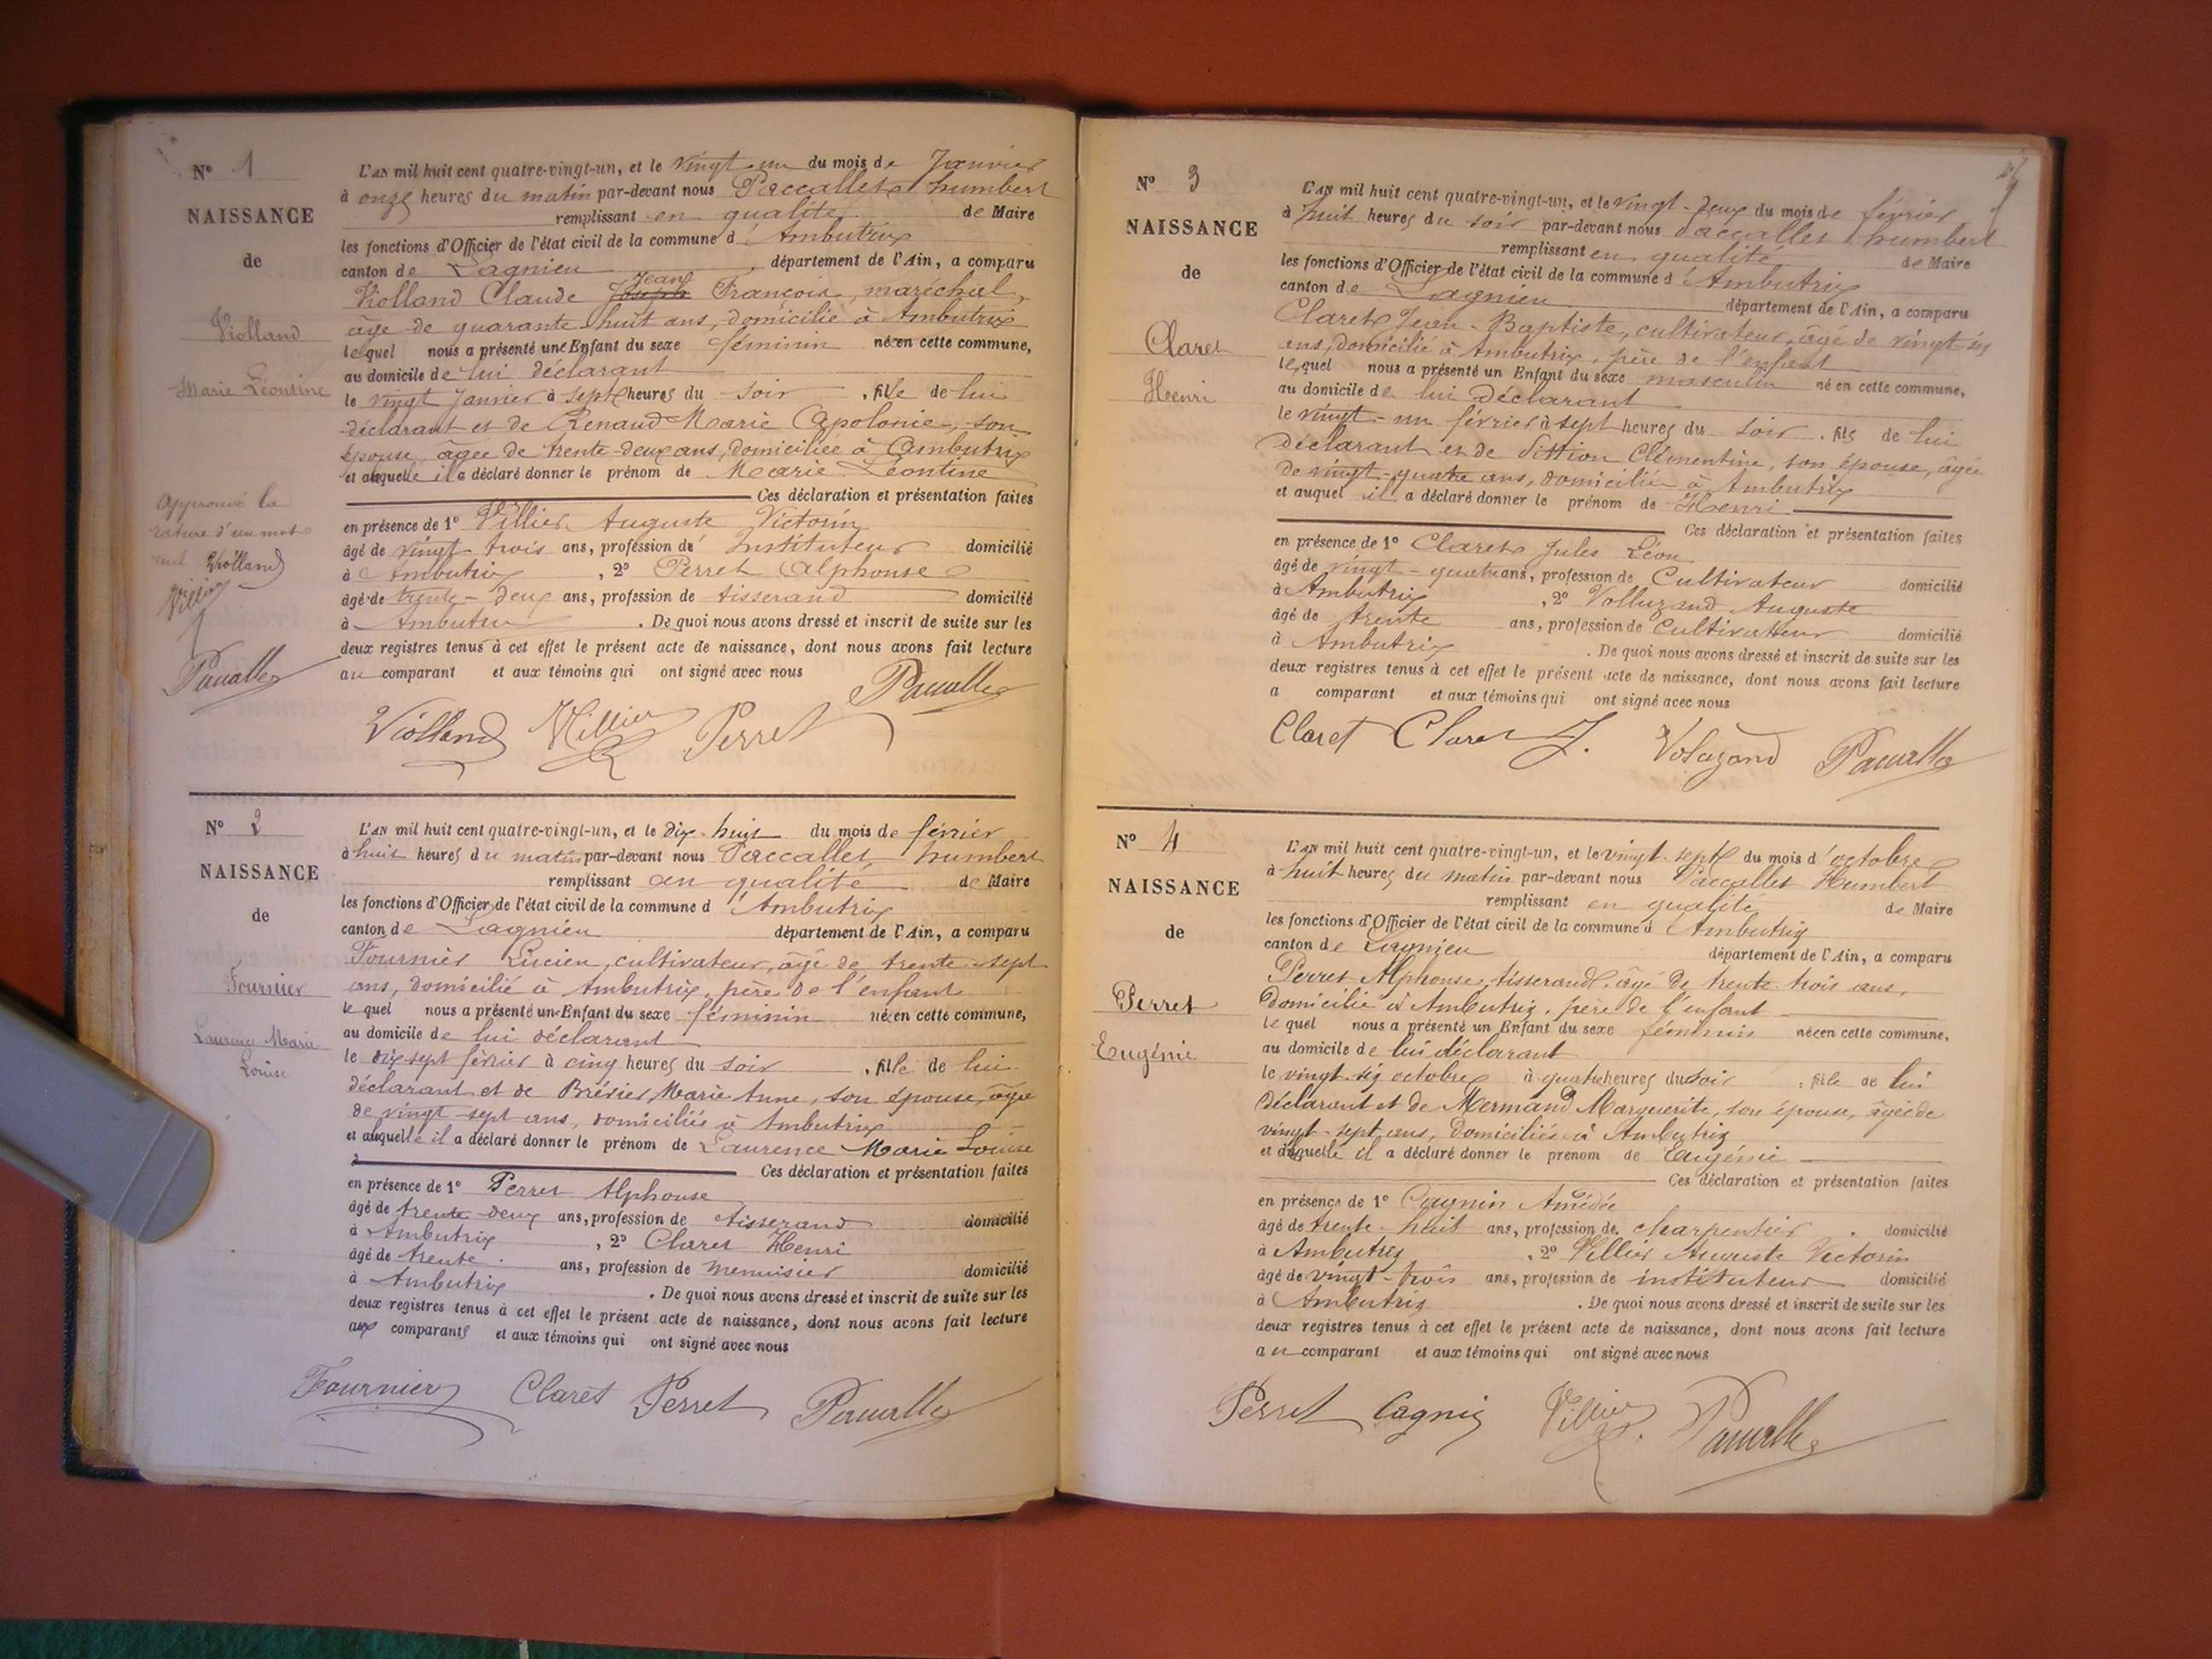 N° 1
NAISSANCE
de
Violland
Marie Léontine
Approuvé la
rature d'un mot
nul Violland
Villier
Paccallet
L'AN mil huit cent quatre-vingt-un, et le vingt-un du mois de Janvier
à onze heures du matin par-devant nous Paccallet humbert
remplissant en qualité de Maire
les fonctions d'Officier de l'état civil de la commune d'Ambutrix
canton de Lagnieu département de l'Ain, a comparu
Jean
Violland Claude Joseph François, maréchal,
âgé de quarante-huit ans, domicilié à Ambutrix
lequel nous a présenté une Enfant du sexe féminin née en cette commune,
au domicile de lui déclarant
le vingt janvier à sept heures du soir, fille de lui
déclarant et de Renaud Marie Apolonie, son
épouse, âgée de trente-deux ans, domiciliée à Ambutrix
et auquelle il a déclaré donner le prénom de Marie Léontine
Ces déclaration et présentation faites
en présence de 1° Villier Auguste Victorin
âgé de vingt-trois ans, profession de Instituteur domicilié
à Ambutrix, 2° Perret Alphonse
âgé de trente-deux ans, profession de tisserand domicilié
à Ambutrix. De quoi nous avons dressé et inscrit de suite sur les
deux registres tenus à cet effet le présent acte de naissance, dont nous avons fait lecture
au comparant et aux témoins qui ont signé avec nous
Violland Villier Perret Paccallet
N° 2
NAISSANCE
de
Fournier
Laurence Marie
Louise
L'AN mil huit cent quatre-vingt-un, et le dix-huit du mois de février
à huit heures du matin par-devant nous Paccallet humbert
remplissant en qualité de Maire
les fonctions d'Officier de l'état civil de la commune d'Ambutrix
canton de Lagnieu département de l'Ain, a comparu
Fournier Lucien, cultivateur, âgé de trente-sept
ans, domicilié à Ambutrix, père de l'enfant
lequel nous a présenté une Enfant du sexe féminin née en cette commune,
au domicile de lui déclarant
le dix-sept février à cinq heures du soir, fille de lui
déclarant et de Brévier Marie Anne, son épouse, âgée
de vingt-sept ans, domiciliés à Ambutrix
et auquelle il a déclaré donner le prénom de Laurence Marie Louise
Ces déclaration et présentation faites
en présence de 1° Perret Alphonse
âgé de trente-deux ans, profession de tisserand domicilié
à Ambutrix, 2° Claret Henri
âgé de trente ans, profession de menuisier domicilié
à Ambutrix. De quoi nous avons dressé et inscrit de suite sur les
deux registres tenus à cet effet le présent acte de naissance, dont nous avons fait lecture
aux comparants et aux témoins qui ont signé avec nous
Fournier Claret Perret Paccallet
N° 3
NAISSANCE
de
Claret
Henri
L'AN mil huit cent quatre-vingt-un, et le vingt-deux du mois de février
à huit heures du soir par-devant nous Paccallet humbert
remplissant en qualité de Maire
les fonctions d'Officier de l'état civil de la commune d'Ambutrix
canton de Lagnieu département de l'Ain, a comparu
Claret Jean-Baptiste, cultivateur, âgé de vingt-six
ans, domicilié à Ambutrix, père de l'enfant
lequel nous a présenté un Enfant du sexe masculin né en cette commune,
au domicile de lui déclarant
le vingt-un février à sept heures du soir, fils de lui
déclarant et de Clémentine, son épouse, âgée
de vingt-quatre ans, domiciliée à Ambutrix
et auquel il a déclaré donner le prénom de Henri
Ces déclaration et présentation faites
en présence de 1° Claret Jules Léon
âgé de vingt-quatre ans, profession de Cultivateur domicilié
à Ambutrix, 2° Volluzand Auguste
âgé de trente ans, profession de Cultivateur domicilié
à Ambutrix. De quoi nous avons dressé et inscrit de suite sur les
deux registres tenus à cet effet le présent acte de naissance, dont nous avons fait lecture
a comparant et aux témoins qui ont signé avec nous
Claret Claret J. Volazand Paccallet
N° 4
NAISSANCE
de
Perret
Eugénie
L'AN mil huit cent quatre-vingt-un, et le vingt-sept du mois d'octobre
à huit heures du matin par-devant nous Paccallet Humbert
remplissant en qualité de Maire
les fonctions d'Officier de l'état civil de la commune d'Ambutrix
canton de Lagnieu département de l'Ain, a comparu
Perret Alphonse, tisserand, âgé de trente-trois ans,
domicilié à Ambutrix, père de l'enfant
lequel nous a présenté un Enfant du sexe féminin née en cette commune,
au domicile de lui déclarant
le vingt-six octobre à quatre heures du soir, fille de lui
déclarant et de Mermand Marguerite, son épouse, âgée de
vingt-sept ans, domiciliés à Ambutrix
et auquelle il a déclaré donner le prénom de Eugénie
Ces déclaration et présentation faites
en présence de 1° Cagnin Amédée
âgé de trente-huit ans, profession de charpentier domicilié
à Ambutrix, 2° Villier Auguste Victorin
âgé de vingt-trois ans, profession de instituteur domicilié
à Ambutrix. De quoi nous avons dressé et inscrit de suite sur les
deux registres tenus à cet effet le présent acte de naissance, dont nous avons fait lecture
au comparant et aux témoins qui ont signé avec nous
Perret Cagnin Villier Paccallet